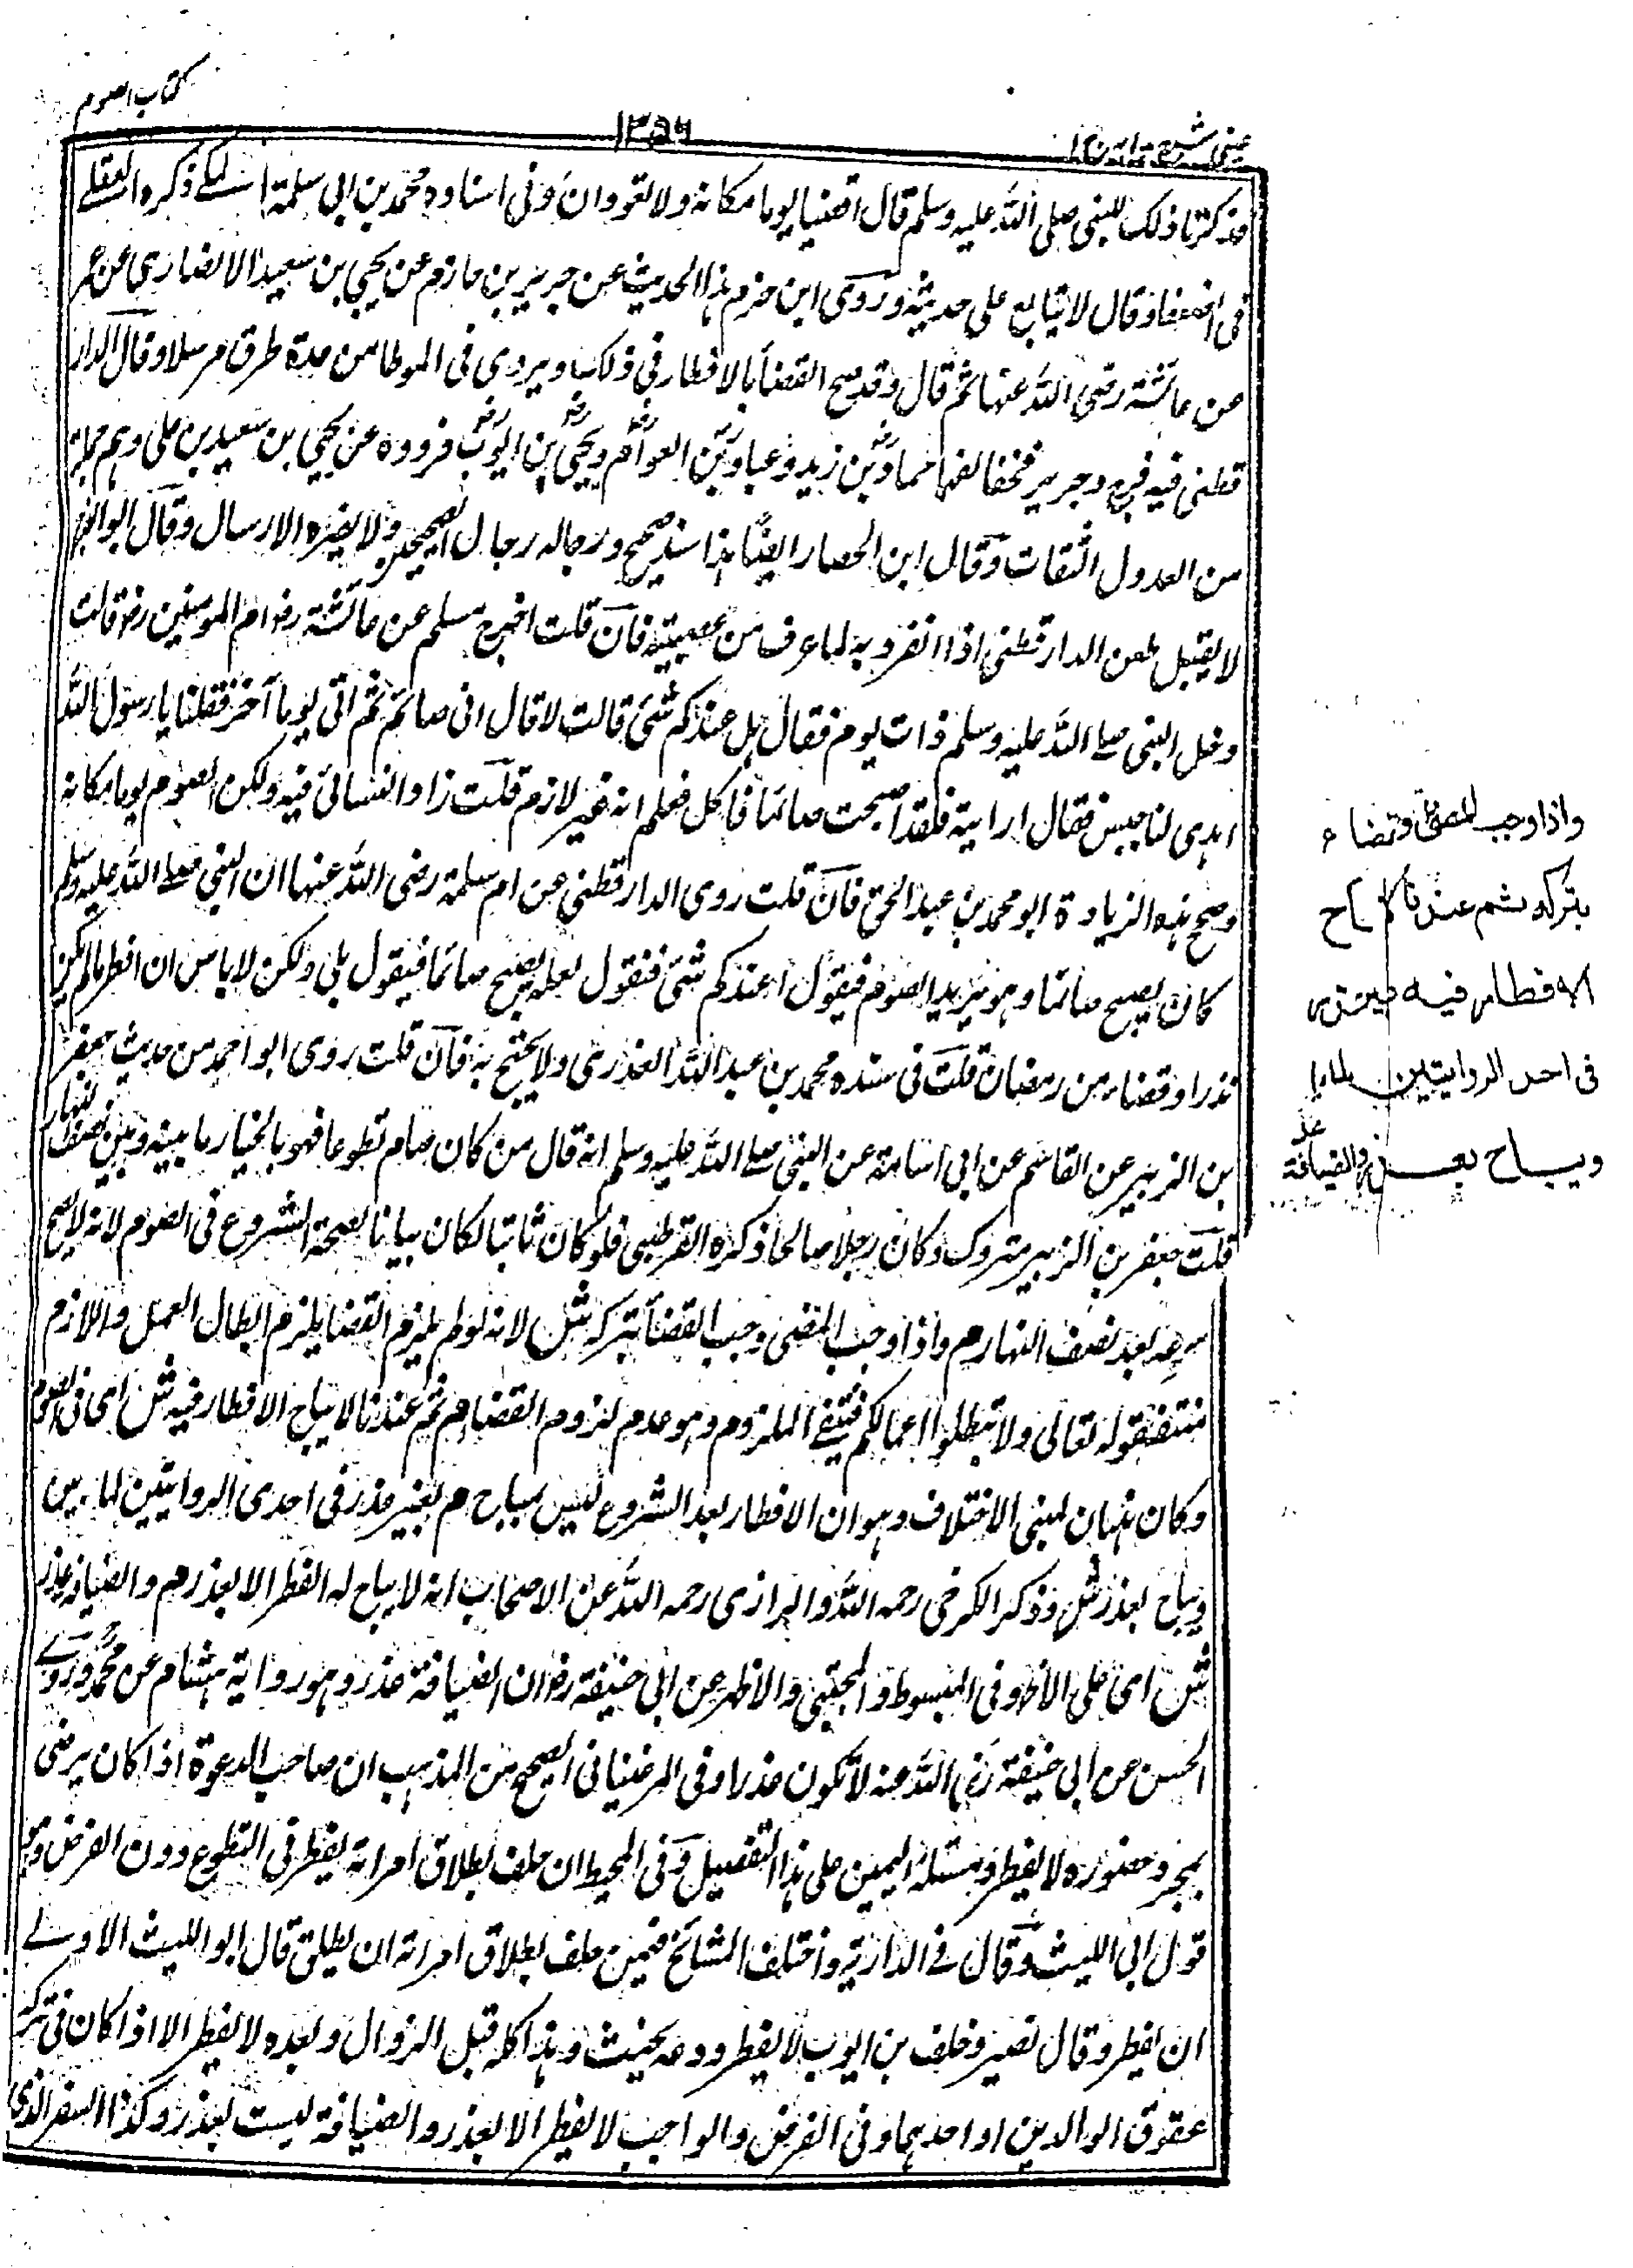 كتاب الصوم
١٣٥٦
عينى شرح هداية ج ١
فذكرنا ذلك للنبى صلى الله عليه وسلم قال اقضيا يوما مكانه ولا تعودان وفى اسناده محمد بن ابى سلمة المكے ذكره العقيلے
فى الضعفاء وقال لا يتابع على حديثه وروى ابن حزم هذا الحديث عن جرير بن حازم عن يحيى بن سعيد الانصارى عن عمرة
عن عائشة رضى الله عنها ثم قال وقد صح القضاء بالافطار فى ذلك ويروى فى الموطا من عدة طرق مرسلا وقال الدار
قطنى فيه فرج وجرير فخالفهما حماد بن زيد وعباد بن العوام ويحيى بن ايوب فرووه عن يحيى بن سعيد بن على وهم جملة
من العدول الثقات وقال ابن الحصار ايضًا هذا سند صحيح ورجاله رجال الصحيحين ولا يضره الارسال وقال ابو الفرج
لا يقبل طعن الدارقطنى اذا انفرد به لما عرف من عصبيته فان قلت اخرج مسلم عن عائشة رض ام المومنين رض قالت
دخل النبى صلے الله عليه وسلم ذات يوم فقال هل عندكم شئ قالت لا قال انى صائم ثم اتى يوما آخر فقلنا يا رسول الله
اهدى لنا حيس فقال ارانيه فلقد اصبحت صائما فاكل فعلم انه غير لازم قلت زاد النسائى فيه ولكن اصوم يوما مكانه
وصحح هذه الزيادة ابو محمد بن عبد الحق فان قلت روى الدارقطنى عن ام سلمة رضى الله عنها ان النبى صلے الله عليه وسلم
كان يصبح صائما وهو يريد الصوم فيقول اعندكم شئ فنقول لعله يصبح صائما فيقول بلى ولكن لا باس ان افطر مالم يكن
نذرا وقضاء من رمضان قلت فى سنده محمد بن عبد الله العذرمى ولا يحتج به فان قلت روى ابو احمد من حديث جعفر
بن الزبير عن القاسم عن ابى امامة عن النبى صلے الله عليه وسلم انه قال من كان صام تطوعا فهو بالخيار ما بينه وبين نصف النهار
قلت جعفر بن الزبير متروك وكان رجلا صالحا ذكره القرطبى فلو كان ثابتا لكان بيانا لصحة الشروع فى الصوم لانه لا يصح
شرعه بعد نصف النهار م واذا وجب المضى وجب القضاء بتركه ش لانه لو لم يلزم القضا يلزم ابطال العمل واللازم
منتف لقوله تعالى ولا تبطلوا اعمالكم فينتفے الملزوم وهو عدم لزوم القضا م ثم عندنا لا يباح الافطار فيه ش اى فى الصوم
وكان هذان لمبنى الاختلاف وهو ان الافطار بعد الشروع ليس بمباح م بغير عذر فى احدى الروايتين لما بين
ويباح بعذر ش وذكر الكرخى رحمه الله والرازى رحمه الله عن الاصحاب انه لا يباح له الفطر الا بعذر م والضيافة عذر
ش اى على الاظهر وفى المبسوط والمجتبى والاظهر عن ابى حنيفة رض ان الضيافة عذر وهو رواية هشام عن محمد وروے
الحسن عن ابى حنيفة رضى الله عنه لا تكون عذرا وفى المرغينانى الصحيح من المذهب ان صاحب الدعوة اذا كان يرضى
بمجرد حضوره لا يفطر ومسئلة اليمين على هذا التفصيل وفى المحيط ان حلف بطلاق امراته يفطر فى التطوع دون الفرض وهو
قول ابى الليث وقال فے الدارية واختلف المشائخ فيمن حلف بطلاق امراته ان يطلق قال ابو الليث الاولے
ان يفطر وقال نصير وخلف بن ايوب لا يفطر ودعه يحنث وهذا كله قبل الزوال وبعده لا يفطر الا اذا كان فى تركه
عقوق الوالدين او احدهما وفى الفرض والواجب لا يفطر الا بعذر والضيافة ليست بعذر وكذا السفر الذى
واذا وجب المضى وقضاء
بتركه ثم عندنا لا يباح
الافطار فيه
فى احدى الروايتين لما
ويباح بعذر والضيافة عذر